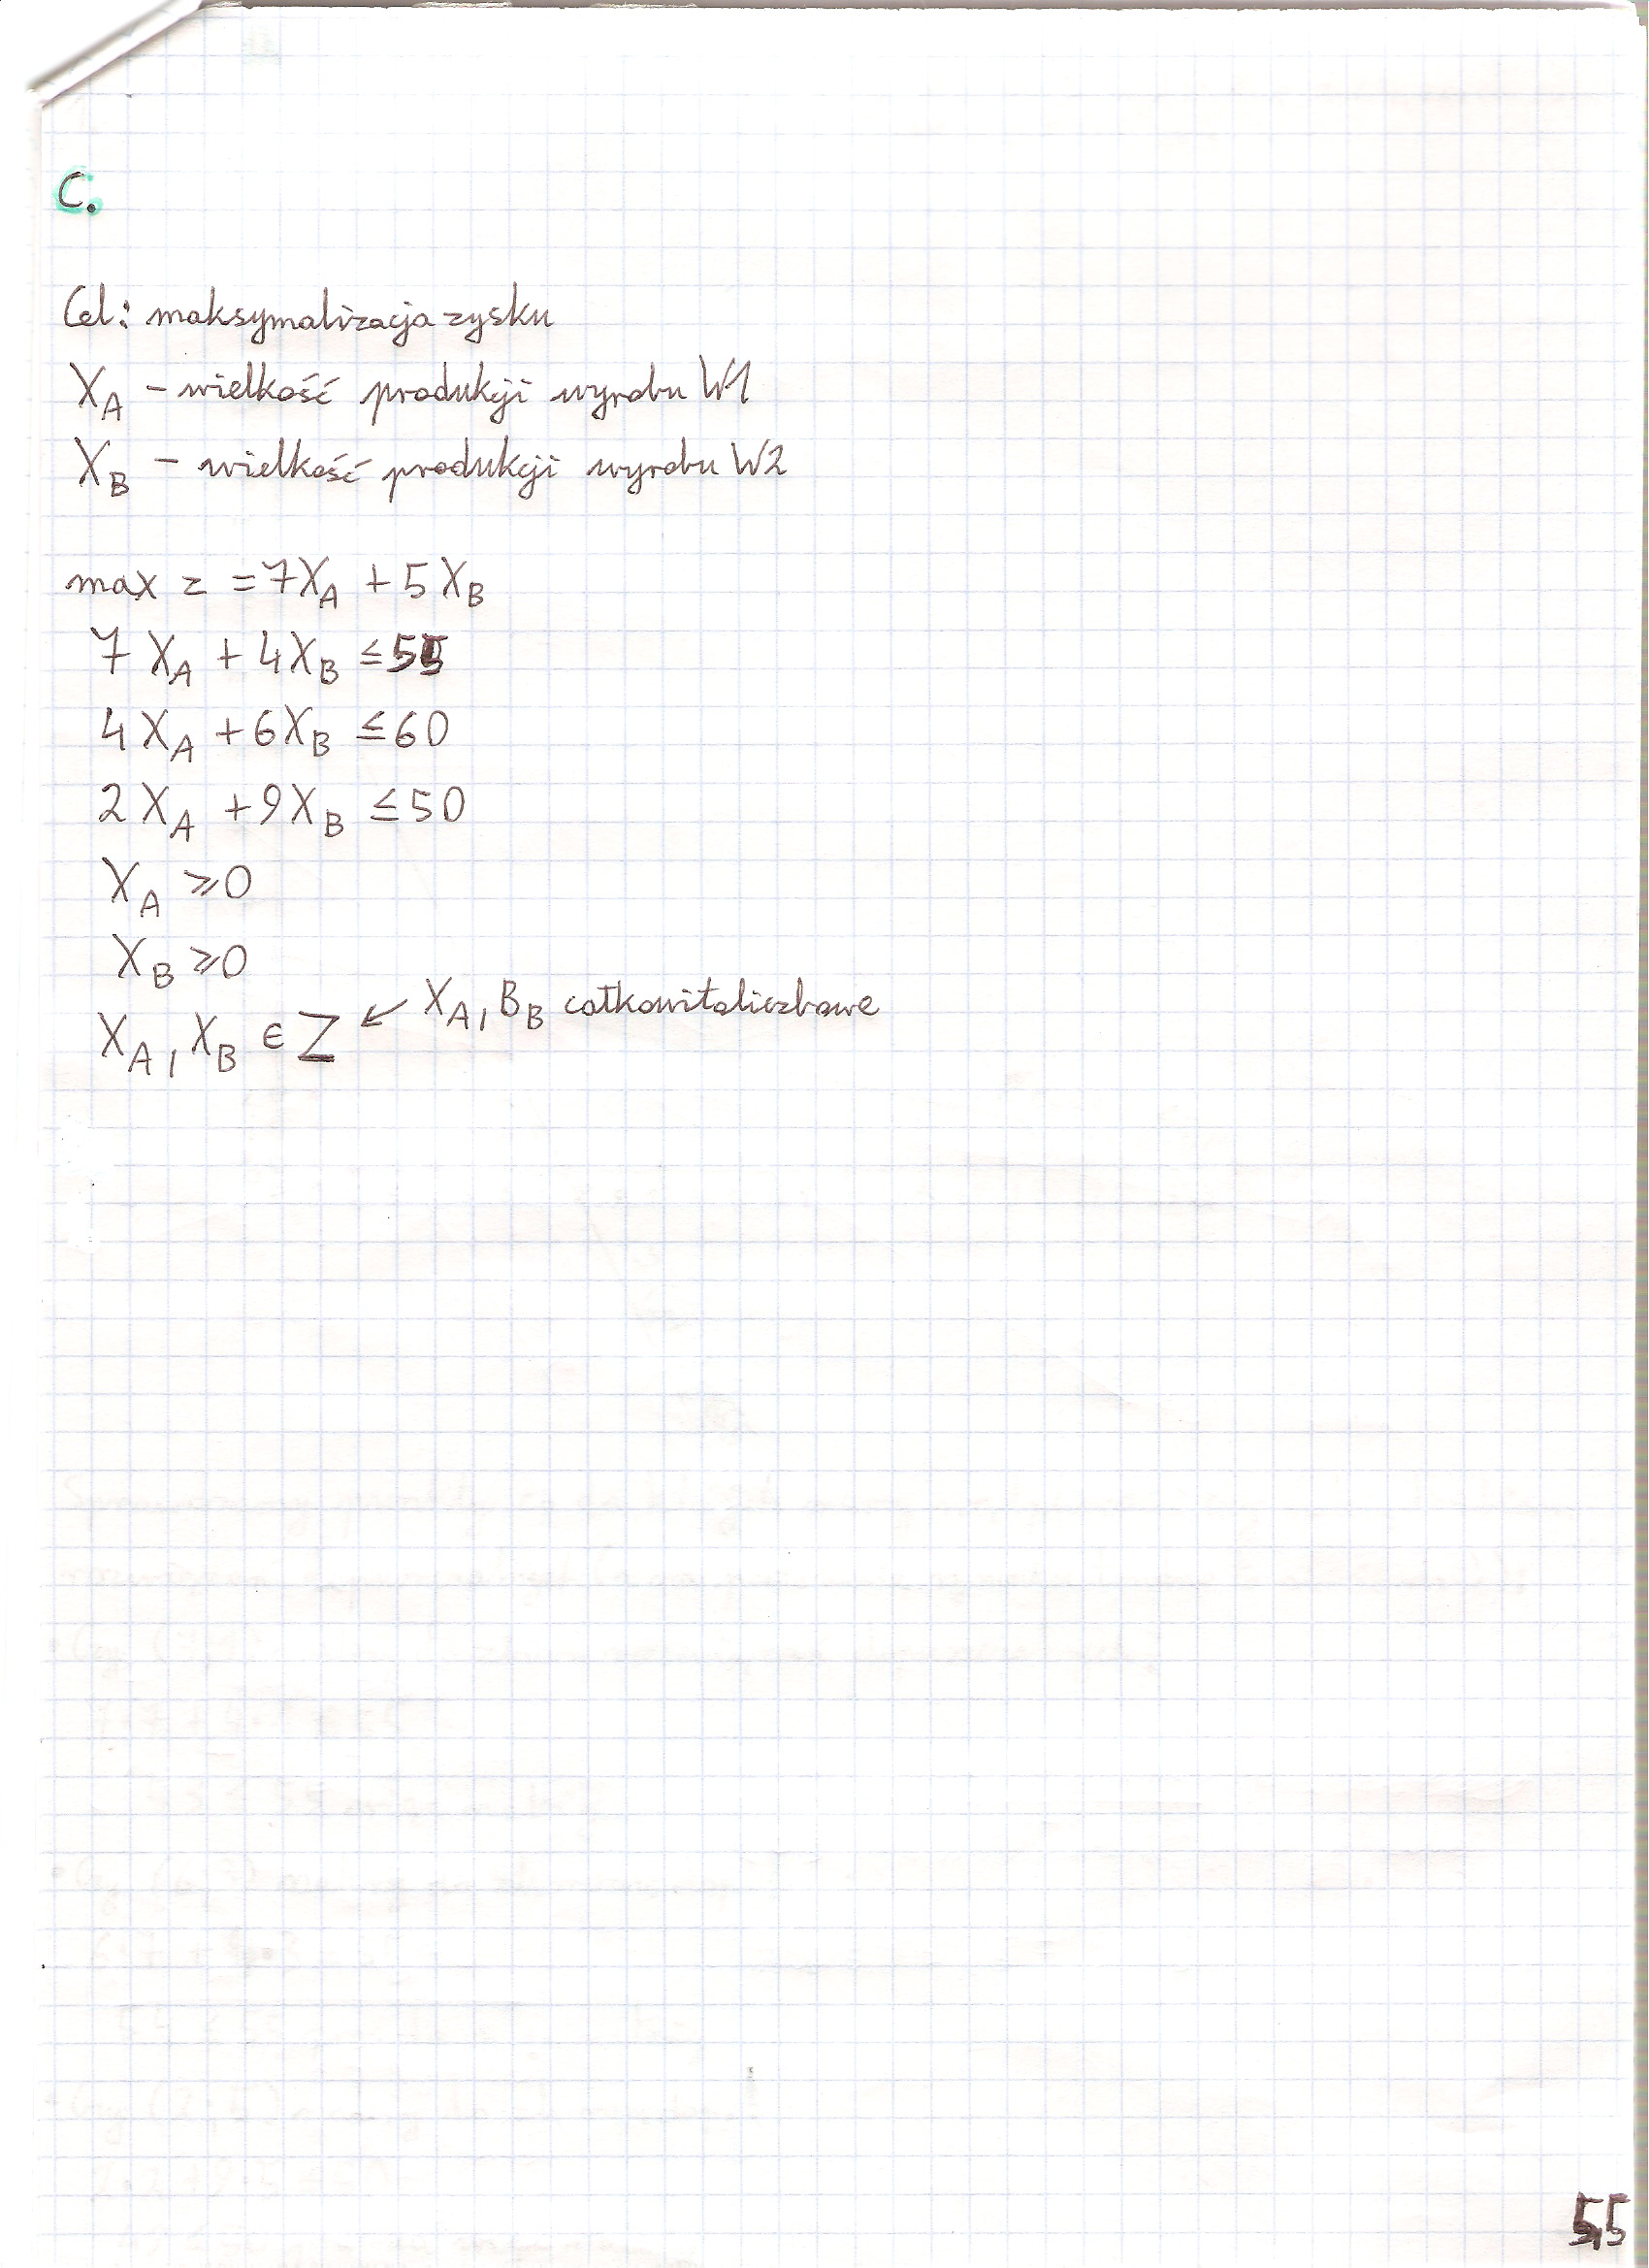 C.
Cel: maksymalizacja zysku
X_A – wielkość produkcji wyrobu W1
X_B – wielkość produkcji wyrobu W2
max z = 7X_A + 5X_B
7X_A + 4X_B ≤ 55
4X_A + 6X_B ≤ 60
2X_A + 9X_B ≤ 50
X_A ≥ 0
X_B ≥ 0
X_A, X_B ∈ Z ↙ X_A, B_B całkowitoliczbowe
55